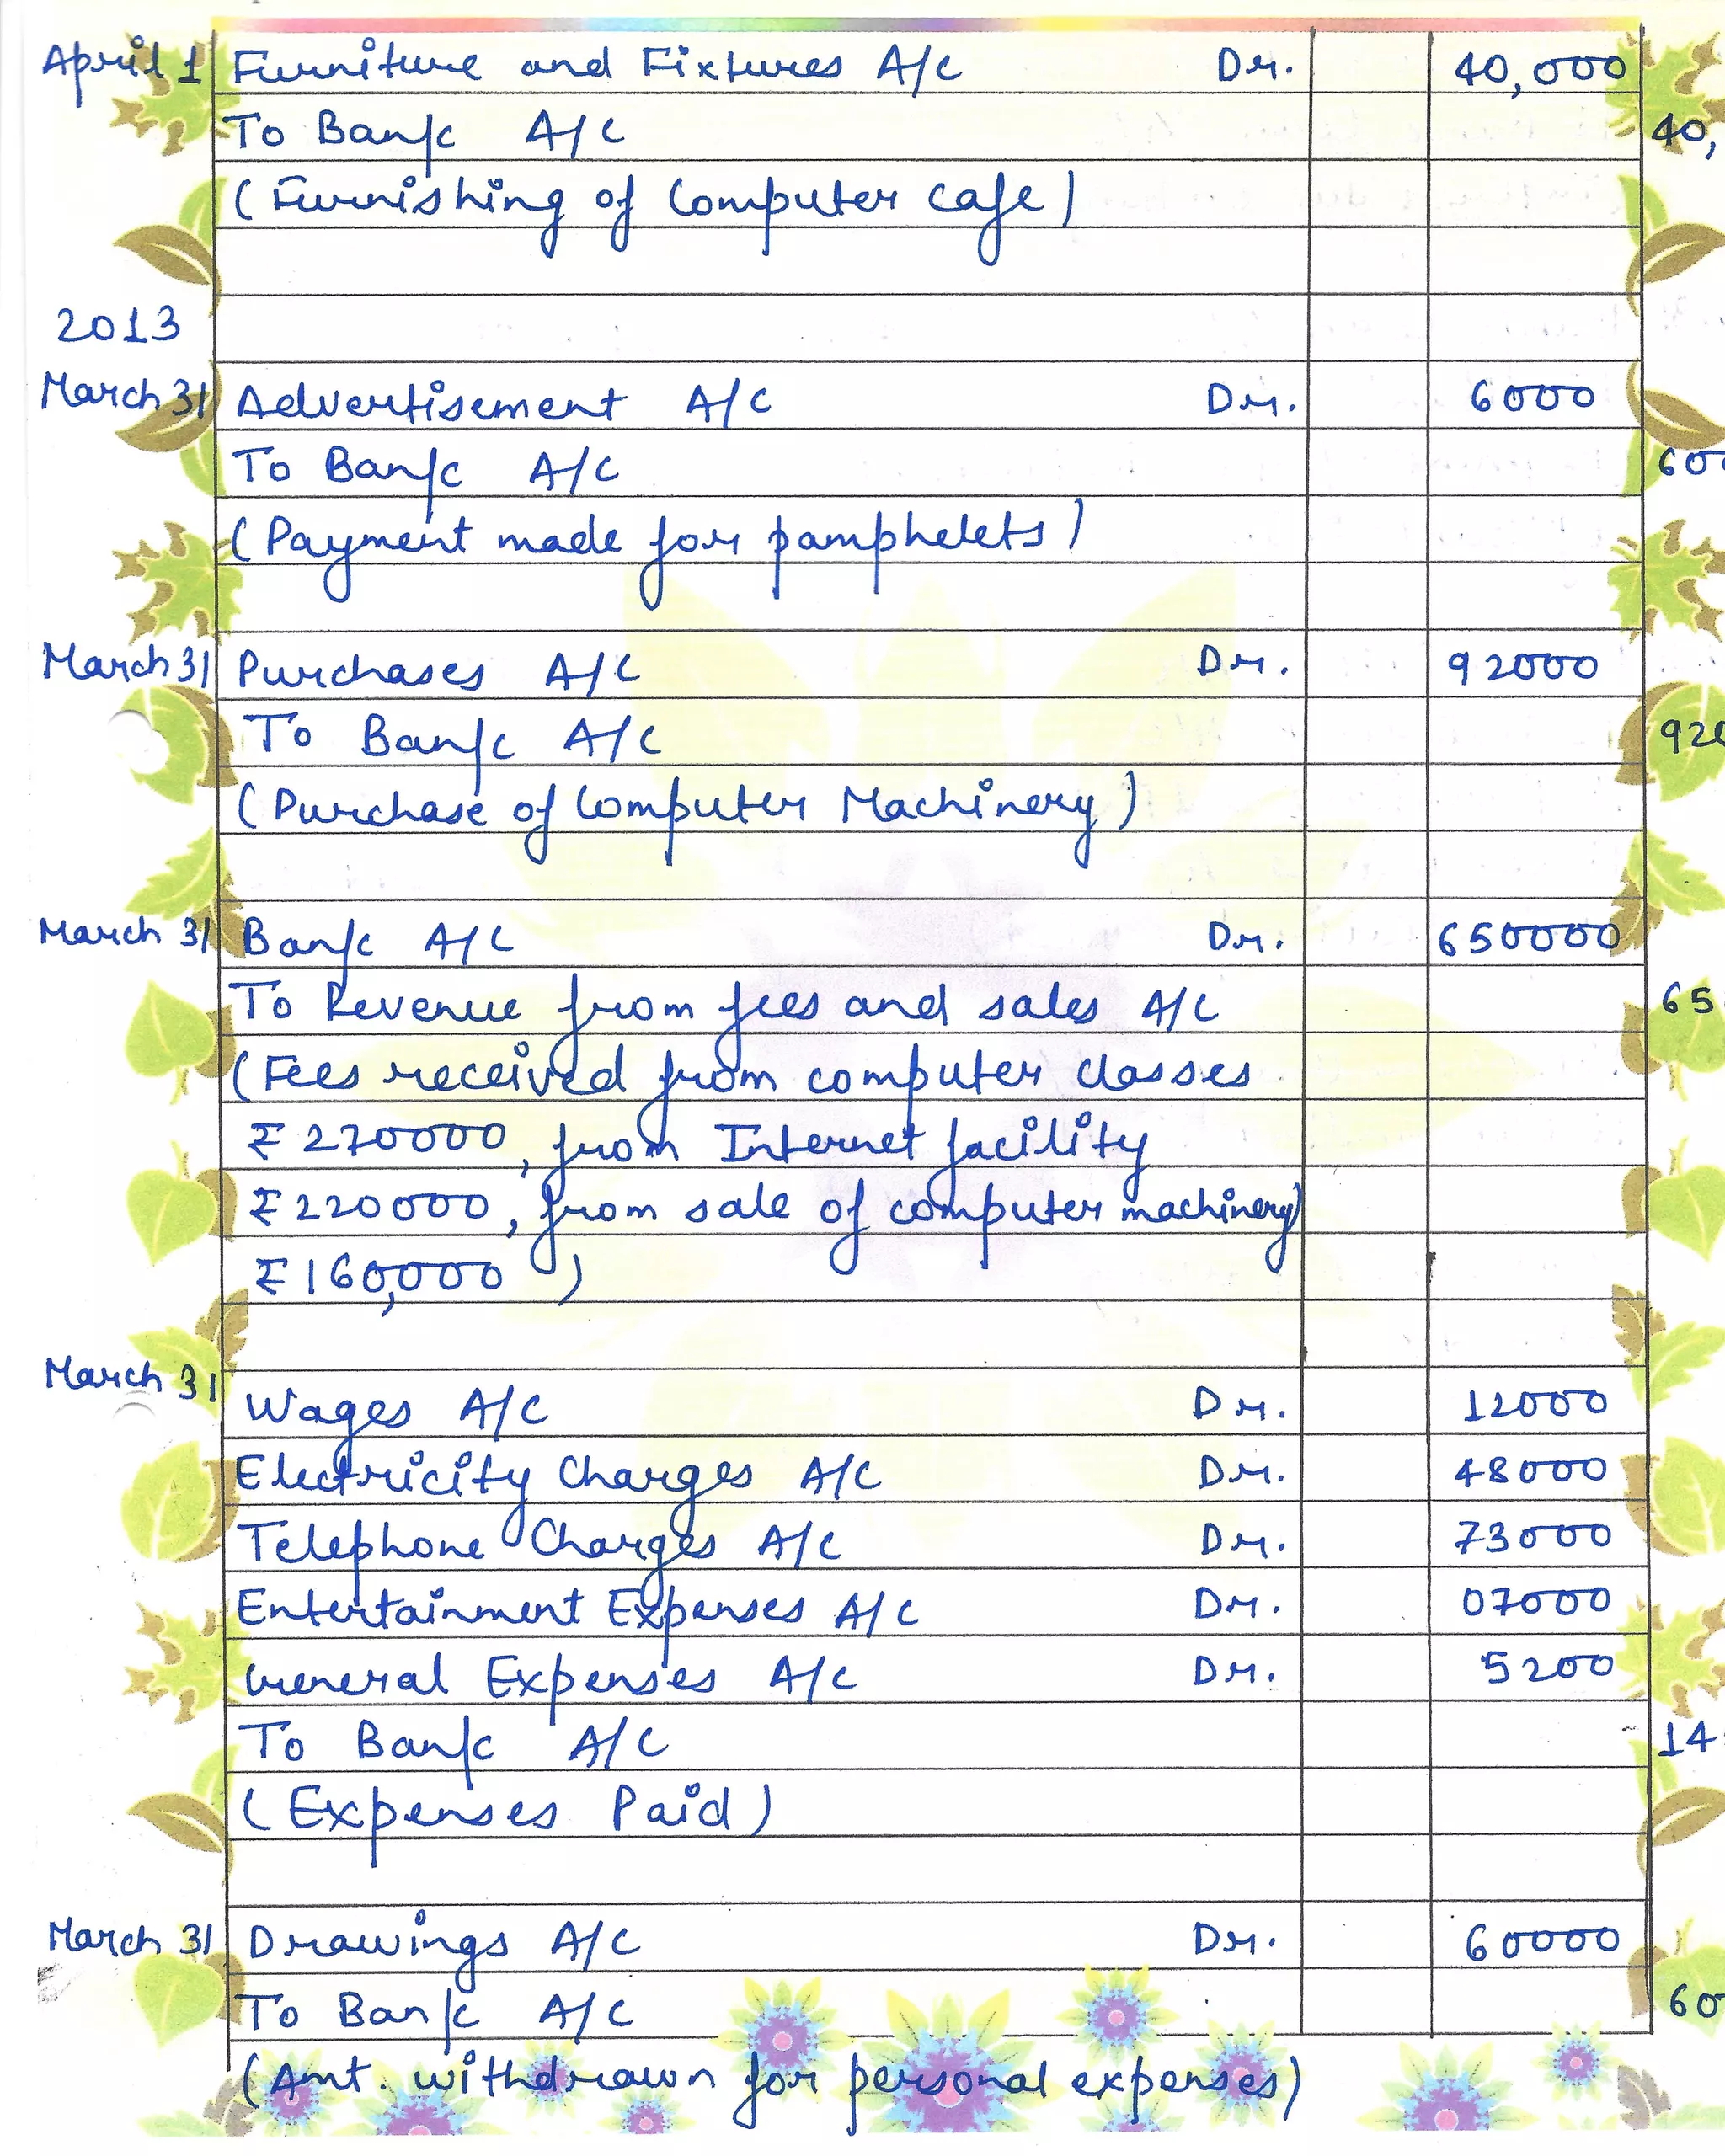 April 1 Furniture and Fixtures A/C Dr. 40,000
To Bank A/C 40,
(Furnishing of Computer Cafe)
2013
March 31 Advertisement A/C Dr. 6000
To Bank A/C 600
(Payment made for pamphelets)
March 31 Purchases A/C Dr. 92000
To Bank A/C 920
(Purchase of Computer Machinery)
March 31 Bank A/C Dr. 650000
To Revenue from fees and sales A/C 65
(Fees received from computer classes
₹ 270000, from Internet facility
₹ 220000, from sale of computer machinery)
₹ 160,000 )
March 31
Wages A/C Dr. 12000
Electricity Charges A/C Dr. 48000
Telephone Charges A/C Dr. 73000
Entertainment Expenses A/C Dr. 07000
General Expenses A/C Dr. 5200
To Bank A/C 14
(Expenses Paid)
March 31 Drawings A/C Dr. 60000
To Bank A/C 60
(Amt. withdrawn for personal expenses)